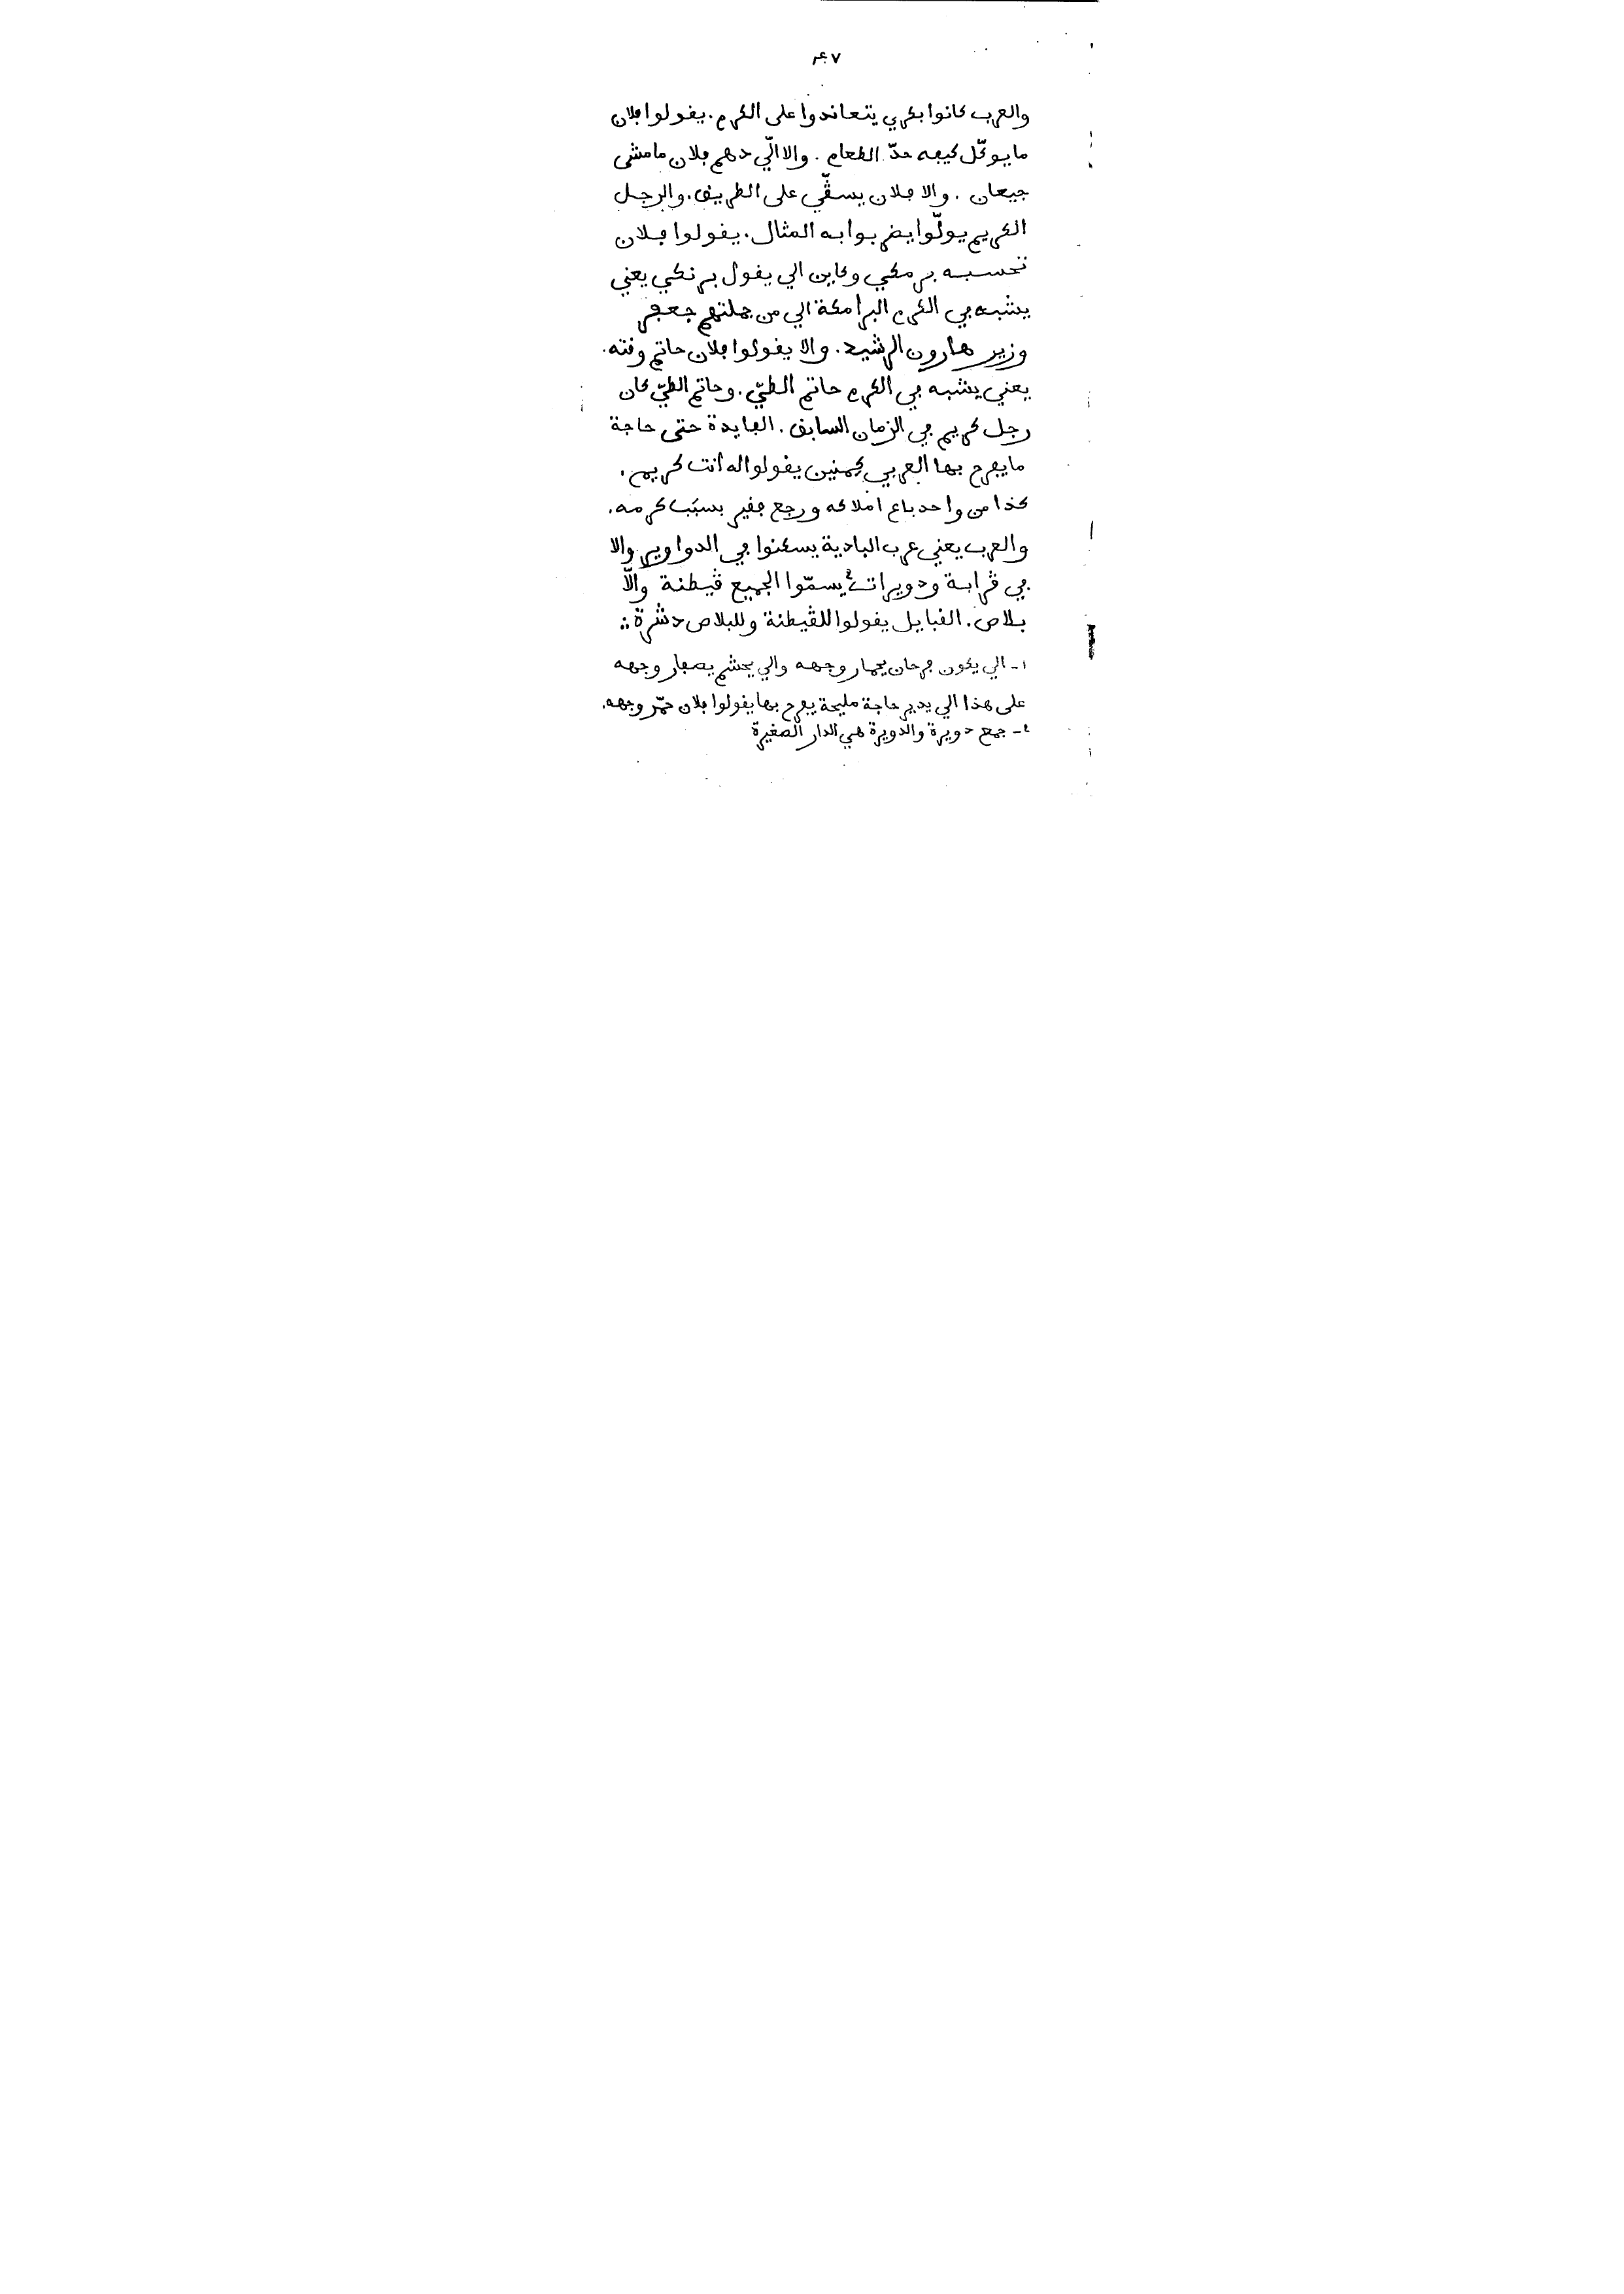 والعرب كانوا بكري يتعاندوا على الكرم. يقولوا فلان
ما يوكّل كيفه حدّ الطعام. والا الّي دهم فلان ما مشى
جيعان. والا فلان يسڤّي على الطريق. والرجل
الكريم يولّوا يضربوا به المثال. يقولوا فلان
تحسبه برمكي وكاين الي يقول برنكي يعني
يشبه في الكرم البرامكة الي من جملتهم جعفر
وزير هارون الرشيد. والا يقولوا فلان حاتم وقته.
يعني يشبه في الكرم حاتم الطيّ. وحاتم الطيّ كان
رجل كريم في الزمان السابق. الفايدة حتى حاجة
ما يفرح بها العربي كمنين يقولوا له أنت كريم.
كذا من واحد باع املاكه ورجع فقير بسبب كرمه.
والعرب يعني عرب البادية يسكنوا في الدواوير والا
في ڤرابة ودويرات٢ يسمّوا الجميع ڤيطنة والّا
بلاص. القبايل يقولوا للڤيطنة وللبلاص دشرة
١ـ الي يكون فرحان يحمار وجهه والي يحشم يصفار وجهه
على هذا الي يدير حاجة مليحة يفرح بها يقولوا فلان حمّر وجهه.
٢ـ جمع دويرة والدويرة هي الدار الصغيرة